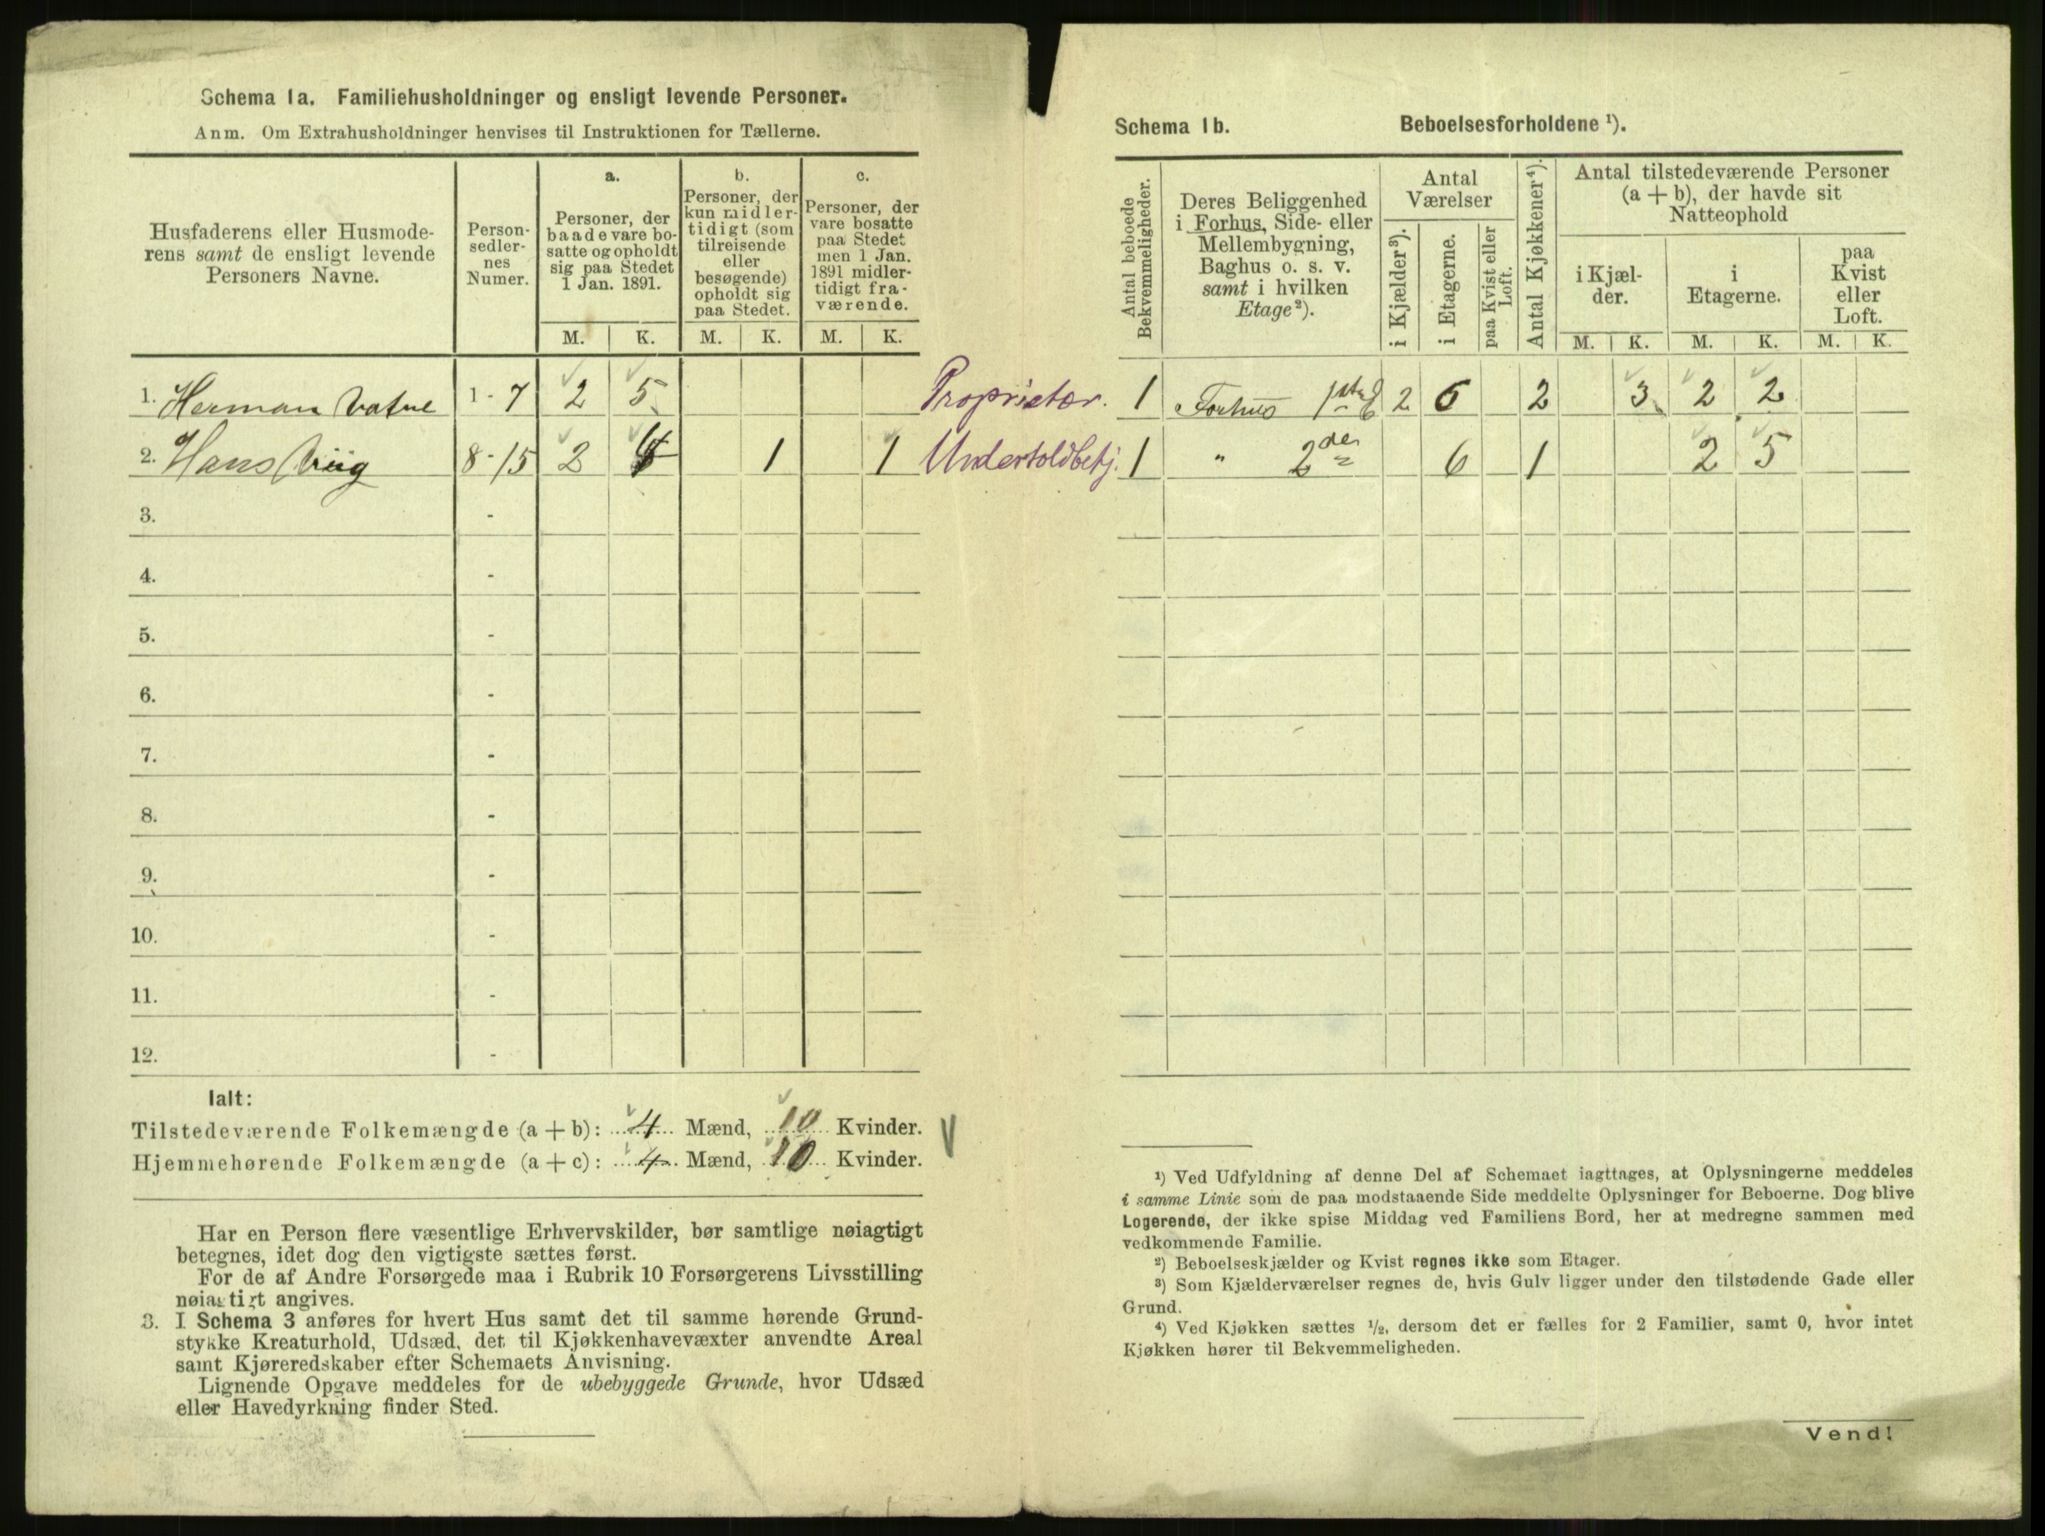 Schema 1a. Familiehusholdninger og ensligt levende Personer.
Anm. Om Extrahusholdninger henvises til Instruktionen for Tællerne.
Husfaderens eller Husmode-
rens samt de ensligt levende
Personers Navne.
Person-
sedler-
nes
Numer.
a.
Personer, der
baade vare bo-
satte og opholdt
sig paa Stedet
1 Jan. 1891.
b.
Personer, der
kun midler-
tidigt (som
tilreisende
eller
besøgende)
opholdt sig
paa Stedet.
c.
Personer, der
vare bosatte
paa Stedet
men 1 Jan.
1891 midler-
tidigt fra-
værende.
M. K. M. K. M. K.
1. Herman Vatne 1-7 2 5 Proprietær.
2. Hans Wiig 8-15 2 4 1 1 Undertoldbetj.
3. -
4. -
5. -
6. -
7. -
8. -
9. -
10. -
11. -
12. -
Ialt:
Tilstedeværende Folkemængde (a + b): 4 Mænd, 10 Kvinder.
Hjemmehørende Folkemængde (a + c): 4 Mænd, 10 Kvinder.
Har en Person flere væsentlige Erhvervskilder, bør samtlige nøiagtigt
betegnes, idet dog den vigtigste sættes først.
For de af Andre Forsørgede maa i Rubrik 10 Forsørgerens Livsstilling
nøiagtigt angives.
3. I Schema 3 anføres for hvert Hus samt det til samme hørende Grund-
stykke Kreaturhold, Udsæd, det til Kjøkkenhavevæxter anvendte Areal
samt Kjøreredskaber efter Schemaets Anvisning.
Lignende Opgave meddeles for de ubebyggede Grunde, hvor Udsæd
eller Havedyrkning finder Sted.
Schema 1b. Beboelsesforholdene ¹).
Antal beboede
Bekvemmeligheder.
Deres Beliggenhed
i Forhus, Side- eller
Mellembygning,
Baghus o. s. v.
samt i hvilken
Etage²).
Antal
Værelser
i Kjælder³).
i Etagerne.
paa Kvist eller
Loft.
Antal Kjøkkener⁴).
Antal tilstedeværende Personer
(a + b), der havde sit
Natteophold
i Kjæl-
der.
i
Etagerne.
paa
Kvist
eller
Loft.
M. K. M. K. M. K.
1 Forhus 1ste E 2 6 2 3 2 2
1 " 2den 6 1 2 5
¹) Ved Udfyldning af denne Del af Schemaet iagttages, at Oplysningerne meddeles
i samme Linie som de paa modstaaende Side meddelte Oplysninger for Beboerne. Dog blive
Logerende, der ikke spise Middag ved Familiens Bord, her at medregne sammen med
vedkommende Familie.
²) Beboelseskjælder og Kvist regnes ikke som Etager.
³) Som Kjælderværelser regnes de, hvis Gulv ligger under den tilstødende Gade eller
Grund.
⁴) Ved Kjøkken sættes ½, dersom det er fælles for 2 Familier, samt 0, hvor intet
Kjøkken hører til Bekvemmeligheden.
Vend!